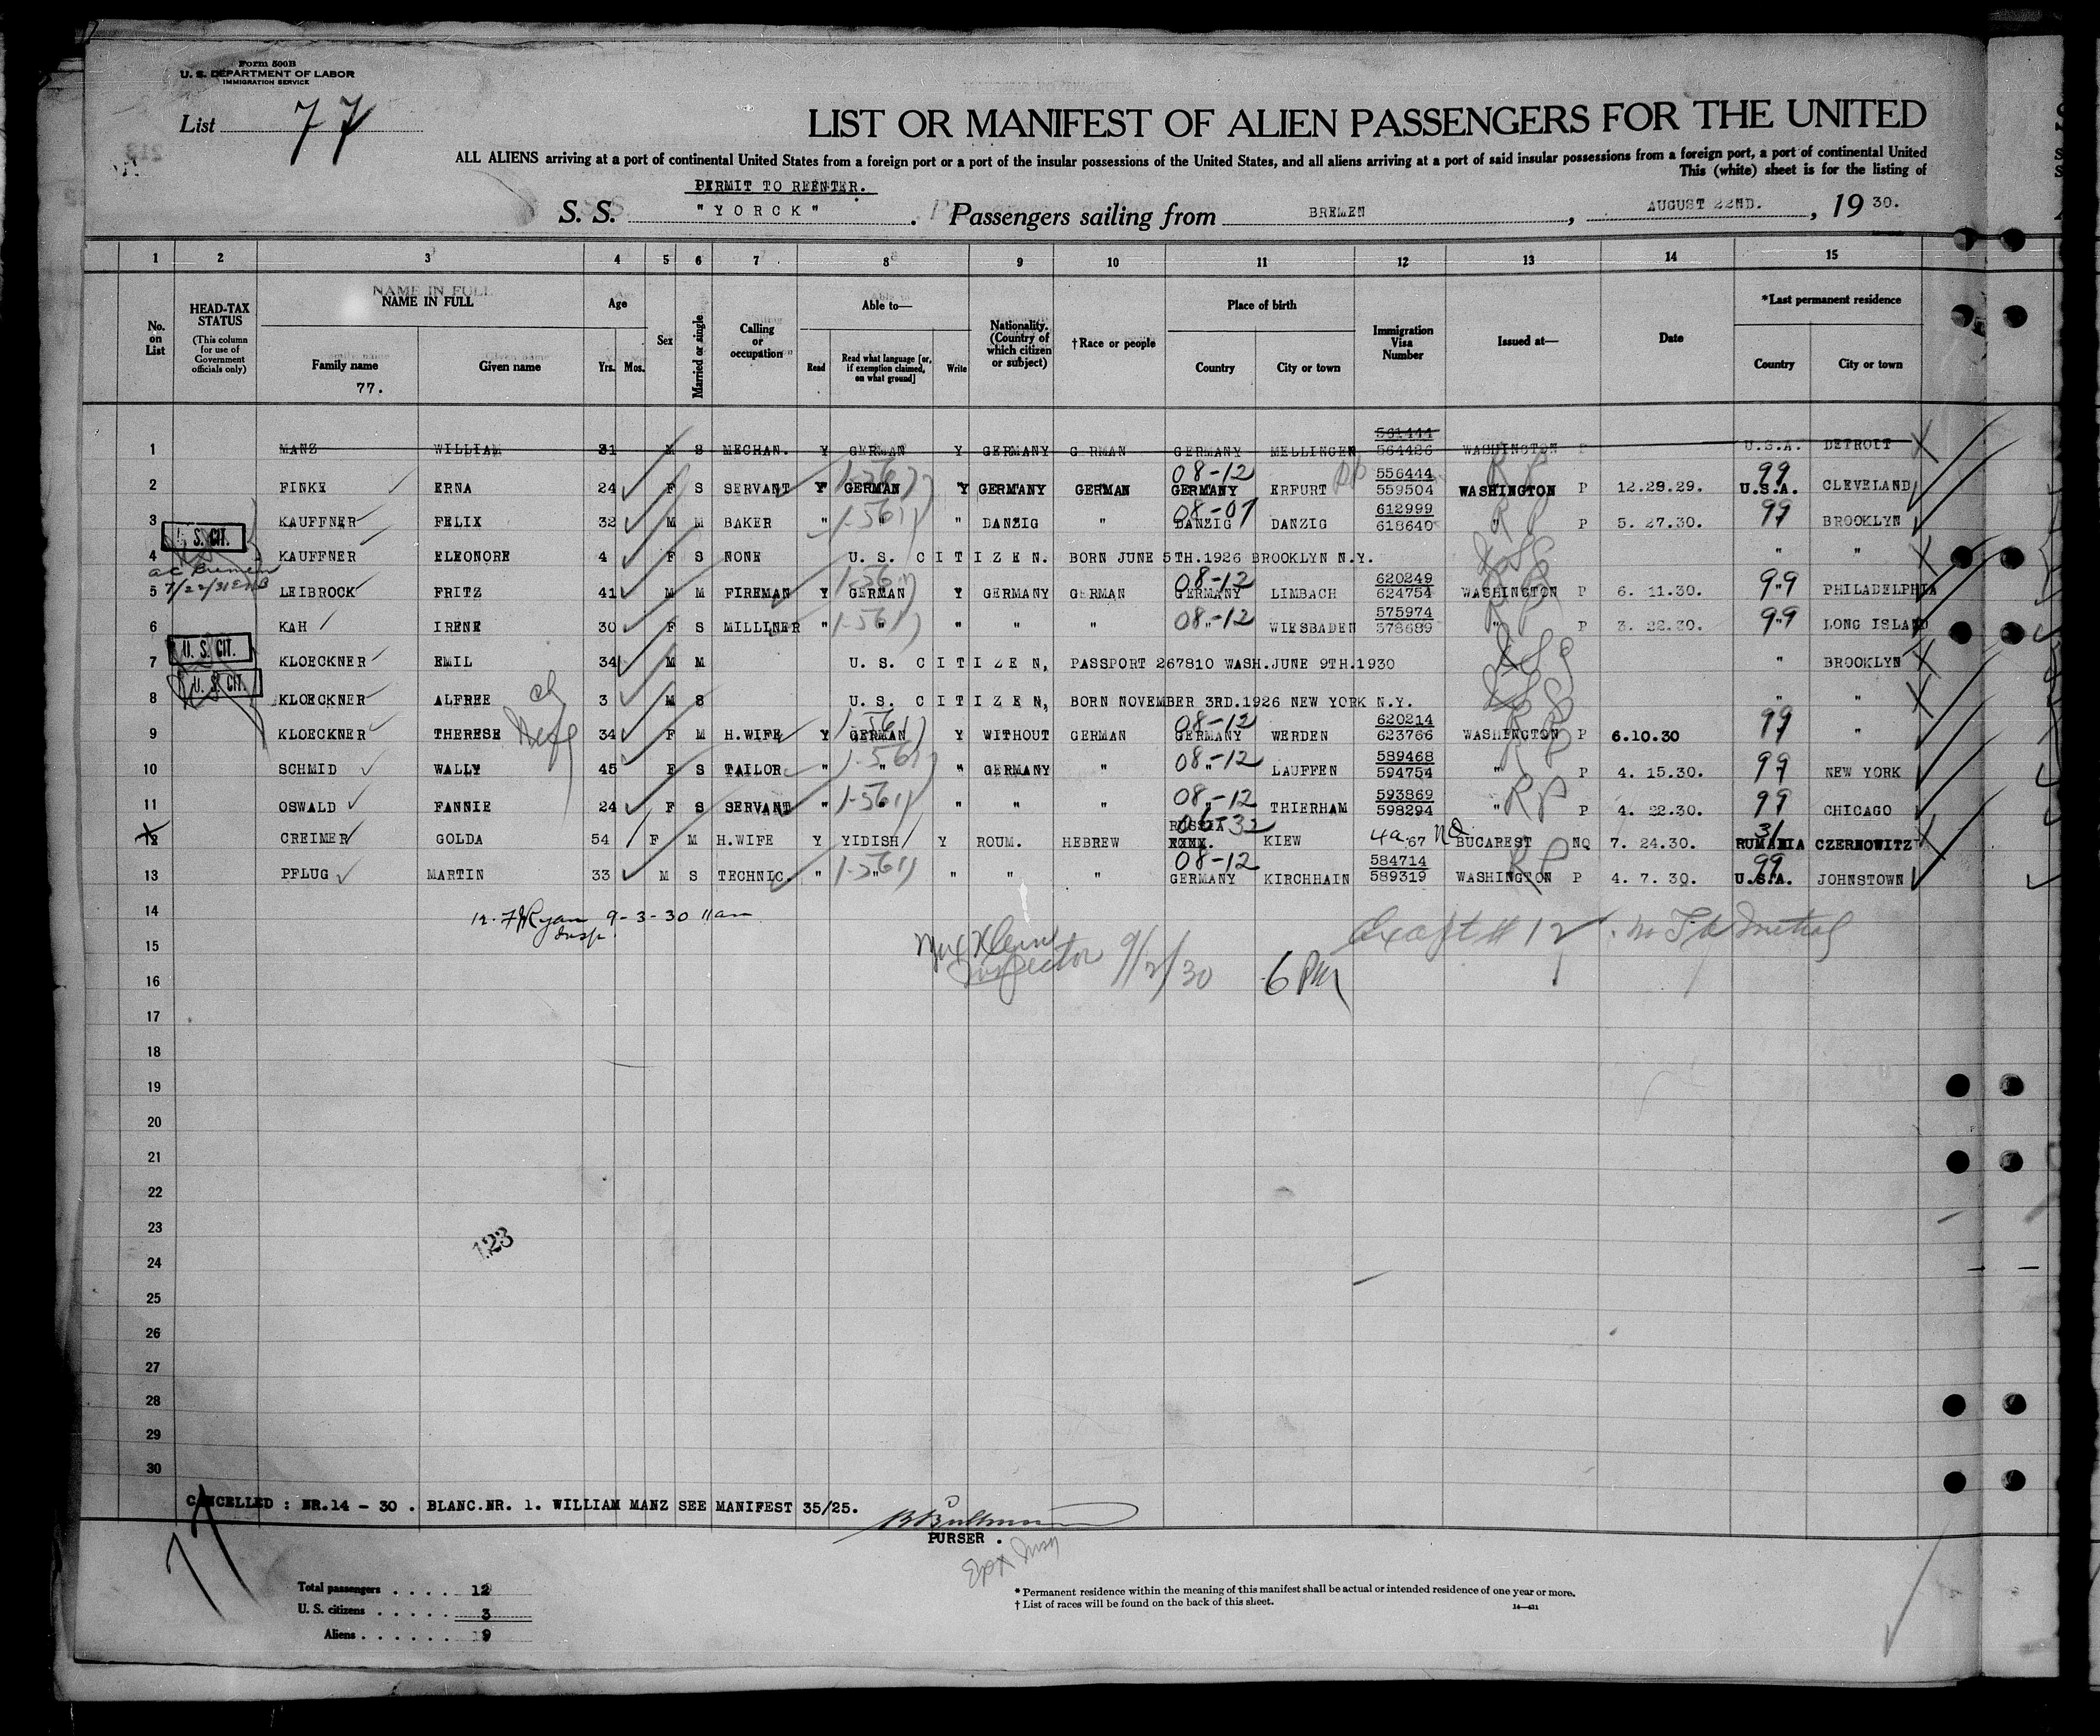 Form 500B
U. S. DEPARTMENT OF LABOR
IMMIGRATION SERVICE
List 77
LIST OR MANIFEST OF ALIEN PASSENGERS FOR THE UNITED
ALL ALIENS arriving at a port of continental United States from a foreign port or a port of the insular possessions of the United States, and all aliens arriving at a port of said insular possessions from a foreign port, a port of continental United
This (white) sheet is for the listing of
PERMIT TO REENTER.
S. S. "YORCK". Passengers sailing from BREMEN, AUGUST 22ND., 1930.
1 2 3 4 5 6 7 8 9 10 11 12 13 14 15
No. on List
HEAD-TAX STATUS (This column for use of Government officials only)
NAME IN FULL Family name Given name
77.
Age Yrs. Mos.
Sex
Married or single
Calling or occupation
Able to— Read Read what language [or, if exemption claimed, on what ground] Write
Nationality. (Country of which citizen or subject)
†Race or people
Place of birth Country City or town
Immigration Visa Number
Issued at—
Date
*Last permanent residence Country City or town
1 MANZ WILLIAM 31 M S MECHAN. Y GERMAN Y GERMANY GERMAN GERMANY MELLINGEN 561444 564426 WASHINGTON P U.S.A. DETROIT
2 FINKE ERNA 24 F S SERVANT Y GERMAN Y GERMANY GERMAN 08-12 GERMANY ERFURT 556444 559504 RP WASHINGTON P 12.28.29. 99 U.S.A. CLEVELAND
3 KAUFFNER FELIX 32 M M BAKER " " " DANZIG " 08-07 DANZIG DANZIG 612999 618640 RP " P 5. 27.30. 99 BROOKLYN
U. S. CIT.
4 KAUFFNER ELEONORE 4 F S NONE U. S. CITIZEN. BORN JUNE 5TH.1926 BROOKLYN N.Y. " "
5 7/22/31 LEIBROCK FRITZ 41 M M FIREMAN Y GERMAN Y GERMANY GERMAN 08-12 GERMANY LIMBACH 620249 624754 RP WASHINGTON P 6. 11.30. 99 " PHILADELPHIA
6 KAH IRENE 30 F S MILLINER " " " " " 08-12 WIESBADEN 575974 578689 RP " P 3. 22.30. 99 " LONG ISLAND
U. S. CIT.
7 KLOECKNER EMIL 34 M M U. S. CITIZEN, PASSPORT 267810 WASH.JUNE 9TH.1930 " BROOKLYN
U. S. CIT.
8 KLOECKNER ALFREE 3 M S U. S. CITIZEN, BORN NOVEMBER 3RD.1926 NEW YORK N.Y. " "
9 KLOECKNER THERESE 34 F M H.WIFE Y GERMAN Y WITHOUT GERMAN 08-12 GERMANY WERDEN 620214 623766 RP WASHINGTON P 6.10.30 99 "
10 SCHMID WALLY 45 F S TAILOR " " " GERMANY " 08-12 " LAUFFEN 589468 594754 RP " P 4. 15.30. 99 NEW YORK
11 OSWALD FANNIE 24 F S SERVANT " " " " " 08-12 " THIERHAM 593869 598294 RP " P 4. 22.30. 99 CHICAGO
12 CREIMER GOLDA 54 F M H.WIFE Y YIDISH Y ROUM. HEBREW RUSSIA 06-32 KIEW 4a.67 NQ BUCAREST NQ 7. 24.30. 31 RUMANIA CZERNOWITZ
13 PFLUG MARTIN 33 M S TECHNIC. " " " " " 08-12 GERMANY KIRCHHAIN 584714 589319 RP WASHINGTON P 4. 7. 30. 99 U.S.A. JOHNSTOWN
14 Ryan 9-3-30 11am
Insp.
15 Max Klein
Inspector 9/2/30 6 PM
16
17
18
19
20
21
22
23
123
24
25
26
27
28
29
30
CANCELLED : NR.14 - 30 . BLANC.NR. 1. WILLIAM MANZ SEE MANIFEST 35/25.
PURSER .
77
Total passengers . . . . 12
U. S. citizens . . . . . 3
Aliens . . . . . . 9
* Permanent residence within the meaning of this manifest shall be actual or intended residence of one year or more.
† List of races will be found on the back of this sheet.